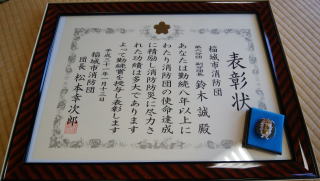 表彰状
稲城市消防団
第六分団 副分団長 鈴木誠殿
あなたは勤続八年以上に
わたり消防団の使命達成
に精励し消防防災に尽力さ
れた功績は多大であります
よって勤続賞を授与し表彰します
平成三十一年一月十三日
稲城市消防団
団長 松本幸次郎